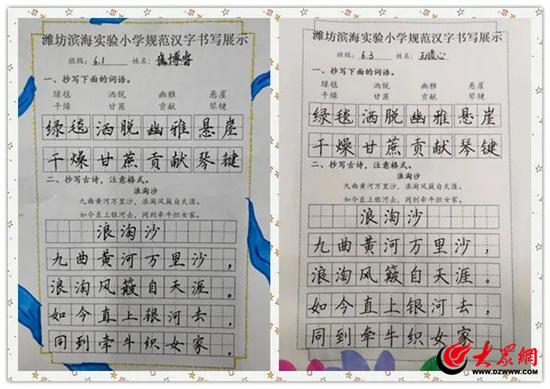 潍坊滨海实验小学规范汉字书写展示
班级: 6.1 姓名: 崔博睿
一、抄写下面的词语。
绿毯 洒脱 幽雅 悬崖
干燥 甘蔗 贡献 琴键
绿毯洒脱幽雅悬崖
干燥甘蔗贡献琴键
二、抄写古诗,注意格式。
浪淘沙
九曲黄河万里沙,浪淘风簸自天涯。
如今直上银河去,同到牵牛织女家。
浪淘沙
九曲黄河万里沙,
浪淘风簸自天涯。
如今直上银河去,
同到牵牛织女家。
潍坊滨海实验小学规范汉字书写展示
班级: 6.3 姓名:
一、抄写下面的词语。
绿毯 洒脱 幽雅 悬崖
干燥 甘蔗 贡献 琴键
绿毯洒脱幽雅悬崖
干燥甘蔗贡献琴键
二、抄写古诗,注意格式。
浪淘沙
九曲黄河万里沙,浪淘风簸自天涯。
如今直上银河去,同到牵牛织女家。
浪淘沙
九曲黄河万里沙,
浪淘风簸自天涯。
如今直上银河去,
同到牵牛织女家。
大众網
www.dzwww.com